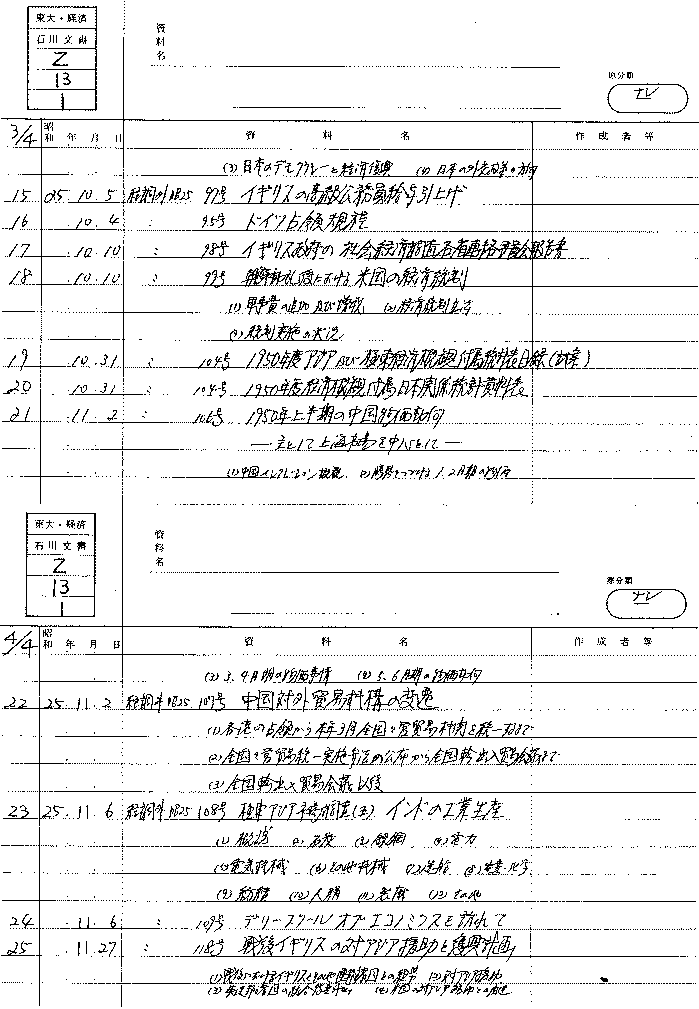 東大・経済
石川文書
Z
13
1
資料名
原分類
ナレ
3/4 昭和 年 月 日 資料名 作成者等
(3) 日本のデモクラシーと経済復興 (4) 日本の
15 25. 10. 5 経調外 昭25 97号 イギリスの高級公務員給与引上げ
16 . 10. 4 〃 95号 ドイツ占領規程
17 . 10. 10 〃 98号 イギリス政府の
18 . 10. 10 〃 99号 における米国の経済統制
(1) 軍事費の追加及び増税 (2) 経済統制立法
(3) 統制実施の状況
19 . 10. 31 〃 104号 1950年度アジア及び極東経済概観付属統計表目録
20 . 10. 31 〃 104号 1950年度経済概観付属日本関係統計資料表
21 . 11. 2 〃 106号 1950年上半期の中国物価動向
― 主として上海を中心として ―
(1) 中国インフレーション概観 (2) 1. 2月期の
東大・経済
石川文書
Z
13
1
資料名
原分類
ナレ
4/4 昭和 年 月 日 資料名 作成者等
(3) 3. 4月期の物価事情 (4) 5. 6月期の物価動向
22 25. 11. 2 経調外 昭25 107号 中国対外貿易機構の変遷
(1) 各港の占領から本年3月全国国営貿易機関を統一するまで
(2) 全国国営貿易統一実施弁法の公布から全国輸出入貿易会議まで
(3) 全国輸出入貿易会議以後
23 25. 11. 6 経調外 昭25 108号 インドの工業生産
(1) 概説 (2) 石炭 (3) 鉄鋼 (4) 電力
(5) 電気機械 (6) その他機械 (7) 造船 (8) ・化学
(9) 紡績 (10) 人絹 (11) (12) その他
24 . 11. 6 〃 109号 デリースクールオブエコノミクスを訪れて
25 . 11. 27 〃 118号 戦後イギリスの対アジア援助と復興計画
(1) 戦後における (2) 対アジア援助